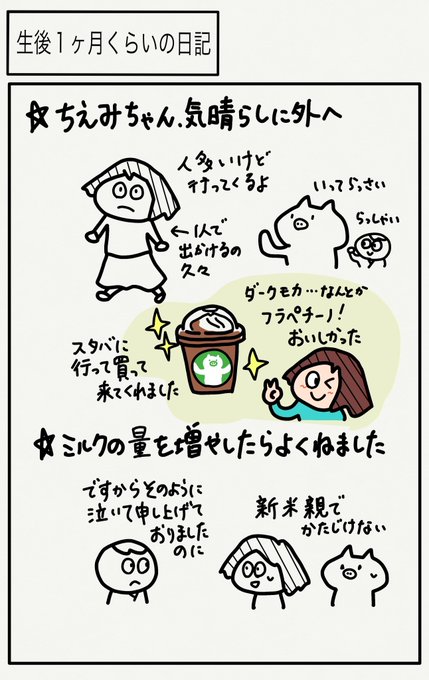 生後1ヶ月くらいの日記
☆ちえみちゃん、気晴らしに外へ
人多いけど
行ってくるよ
←1人で
出かけるの
久々
いってらっさい
らっしゃい
ダークモカ…なんとか
フラペチーノ!
おいしかった
スタバに
行って買って
来てくれました
☆ミルクの量を増やしたらよくねました
ですからそのように
泣いて申し上げて
おりました
のに
新米親で
かたじけない